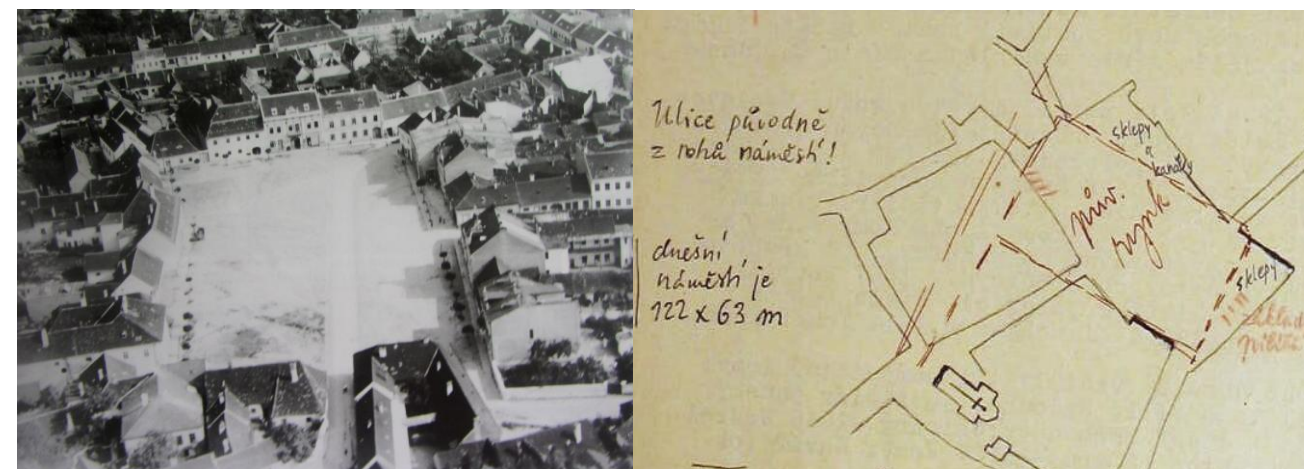 Ulice původně
z rohů náměstí!
dnešní
náměstí je
122 x 63 m
sklepy
a
kanály
pův.
rynk
sklepy